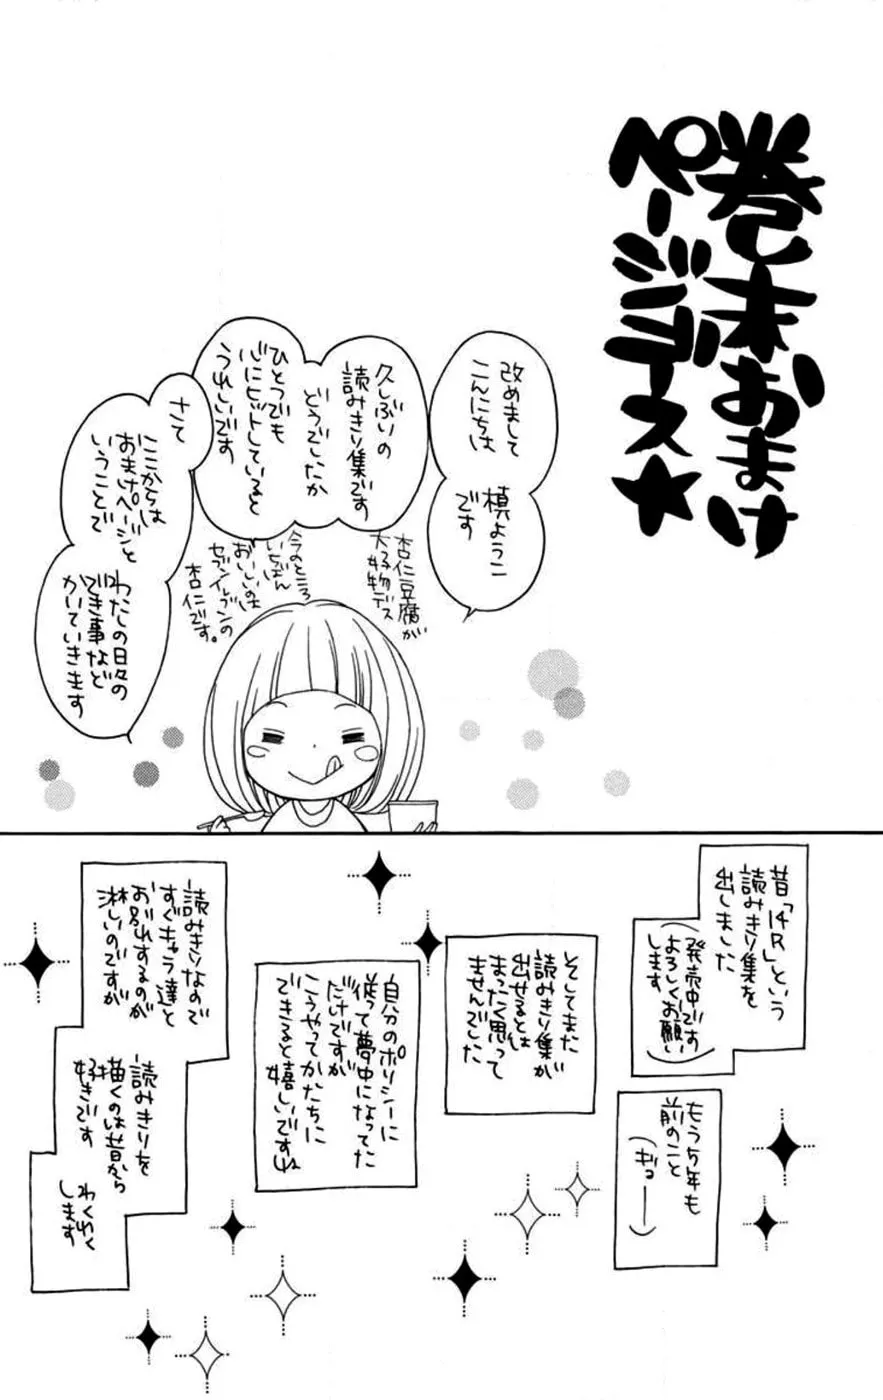 巻末おまけ
ページデス★
改めまして
こんにちは
槙ようこ
です
久しぶりの
読みきり集です
どうでしたか
ひとつでも
心にヒットしていると
うれしいです
さて
ここからは
おまけページと
いうことで
わたしの日々の
でき事など
かいていきます
杏仁豆腐が
大好物デス
今のところ
いちばん
おいしいのは
セブンイレブンの
杏仁です。
昔「14R」という
読みきり集を
出しました
(発売中です
よろしくお願い
します)
もう5年も
前のこと
(ギョーー)
そしてまた
読みきり集が
出せるとは
まったく思って
ませんでした
自分のポリシーに
従って夢中になってた
だけですが
こうやってかたちに
できると嬉しいですね
読みきりなので
すぐキャラ達と
お別れするのが
淋しいのですが
読みきりを
描くのは昔から
好きです
わくわく
します